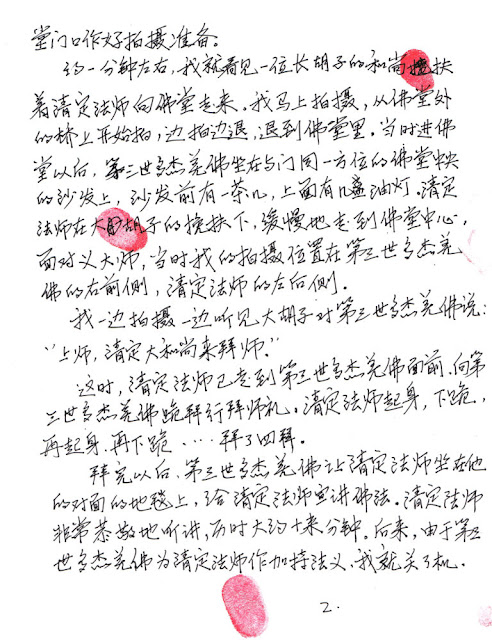 堂门口作好拍摄准备。
约一分钟左右，我就看见一位长胡子的和尚搀扶
着清定法师向佛堂走来。我马上拍摄，从佛堂外
的桥上开始拍，边拍边退，退到佛堂里。当时进佛
堂以后，第三世多杰羌佛坐在与门同一方位的佛堂中央
的沙发上，沙发前有一茶几，上面有几盏油灯。清定
法师在大胡子的搀扶下，缓慢地走到佛堂中心，
面对义大师，当时我的拍摄位置在第三世多杰羌
佛的右前侧，清定法师的左后侧。
我一边拍摄一边听见大胡子对第三世多杰羌佛说：
“上师，清定大和尚来拜师。”
这时，清定法师已走到第三世多杰羌佛面前，向第
三世多杰羌佛跪拜行拜师礼。清定法师起身，下跪，
再起身，再下跪‥‥拜了四拜。
拜完以后，第三世多杰羌佛让清定法师坐在他
的对面的地毯上，给清定法师宣讲佛法。清定法师
非常恭敬地听讲，历时大约十来分钟。后来，由于第三
世多杰羌佛为清定法师作加持法义，我就关了机。
2.